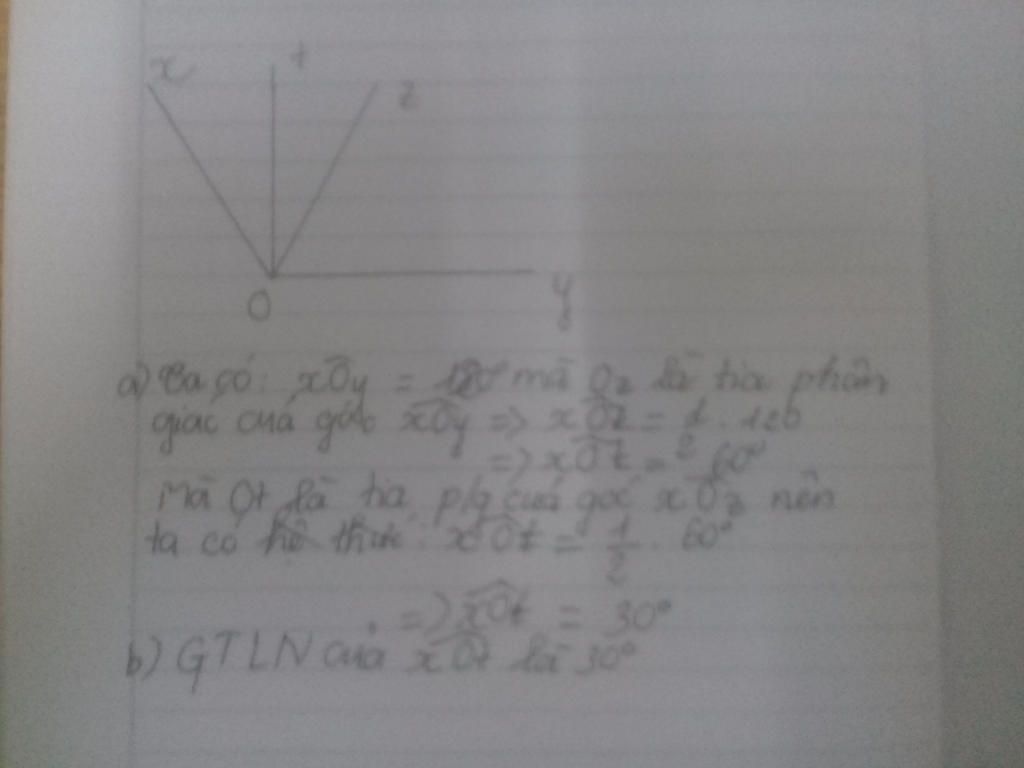 x t z
O y
a) Ta có: xÔy = 120° mà Oz là tia phân
giác của góc xÔy => xÔz = 1/2 . 120
=> xÔz = 60°
Mà Ot là tia p/g của góc xÔz nên
ta có hệ thức: xÔt = 1/2 . 60°
=> xÔt = 30°
b) GTLN của xÔt là 30°